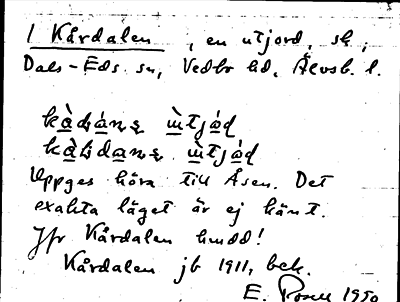 1 Kårdalen, en utjord, sk;
Dals-Eds sn, Vedbo hd, Älvsb. l.
Uppges höra till Åsen. Det
exakta läget är ej känt.
Jfr Kårdalen hmdd!
Kårdalen jb 1911, bek.
E. Rosell 1950